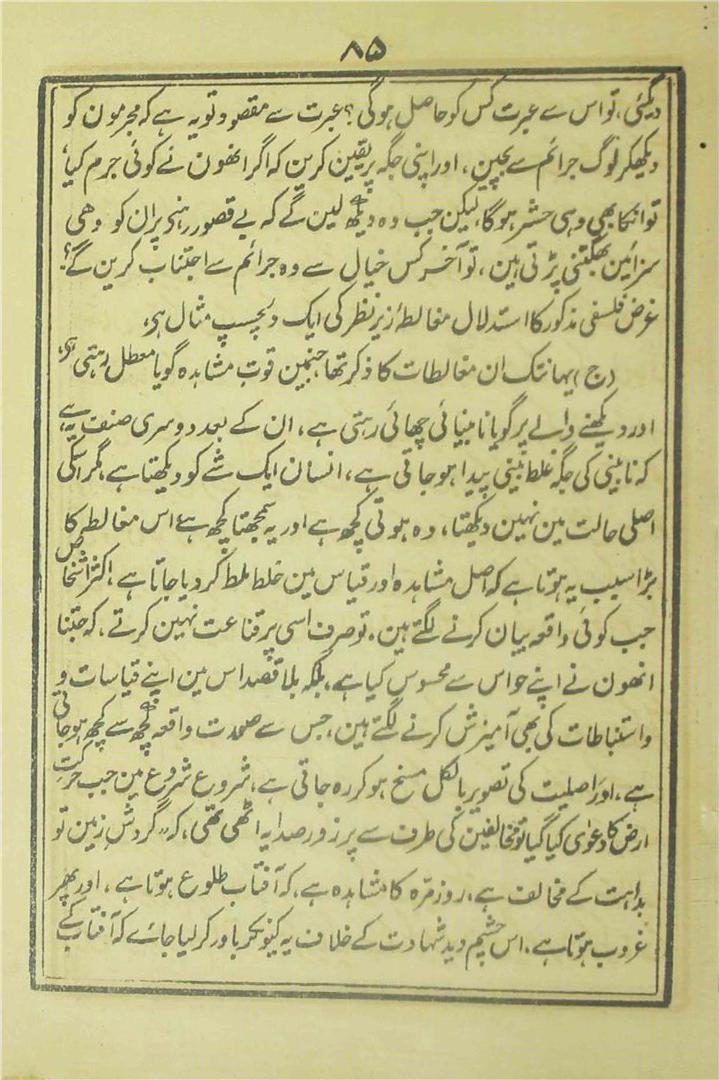 ۸۵
دیگئی، تو اس سے عبرت کس کو حاصل ہوگی؟ عبرت سے مقصود تو یہ ہے کہ مجرمون کو
دیکھکر لوگ جرائم سے بچین، اور اپنی جگہ پر یقین کرین کہ اگر انھون نے کوئی جرم کیا،
تو انکا بھی وہی حشر ہوگا، لیکن جب وہ دیکھ لین گے کہ بے قصور رہنے پر ان کو وھی
سزائین بھگتنی پڑتی ہین، تو آخر کس خیال سے وہ جرائم سے اجتناب کرین گے؟
غرض فلسفی مذکور کا استدلال مغالطۂ زیر نظر کی ایک دلچسپ مثال ہی،
(ج) یہانتک ان مغالطات کا ذکر تھا جنمین قوت مشاہدہ گویا معطل رہتی ہی،
اور دیکھنے والے پر گویا نا بینائی چھائی رہتی ہے، ان کے بعد دوسری صنف یہ ہے،
کہ نابینی کی جگہ غلط بینی پیدا ہو جاتی ہے، انسان ایک شے کو دیکھتا ہے، مگر اسکی
اصلی حالت مین نہین دیکھتا، وہ ہوتی کچھ ہے اور یہ سمجھتا کچھ ہے اس مغالطہ کا
بڑا سبب یہ ہوتا ہے کہ اصل مشاہدہ اور قیاس مین خلط ملط کر دیا جاتا ہے، اکثر اشخاص
جب کوئی واقعہ بیان کرنے لگتے ہین، تو صرف اسی پر قناعت نہین کرتے، کہ جتنا
انھون نے اپنے حواس سے محسوس کیا ہے، بلکہ بلا قصد اس مین اپنے قیاسات و
و استنباطات کی بھی آمیزش کرنے لگتے ہین، جس سے صورت واقعہ کچھ سے کچھ ہو جاتی
ہے، اور اصلیت کی تصویر بالکل مسخ ہو کر رہ جاتی ہے، شروع شروع مین جب حرکتِ
ارض کا دعوٰی کیا گیا تو مخالفین کی طرف سے پر زور صدا یہ اٹھی تھی، کہ "گردش زمین تو
بداہت کے مخالف ہے، روز مرّہ کا مشاہدہ ہے، کہ آفتاب طلوع ہوتا ہے، اور پھر
غروب ہوتا ہے، اس چشم دید شہادت کے خلاف یہ کیونکر باور کر لیا جائے کہ آفتاب کے